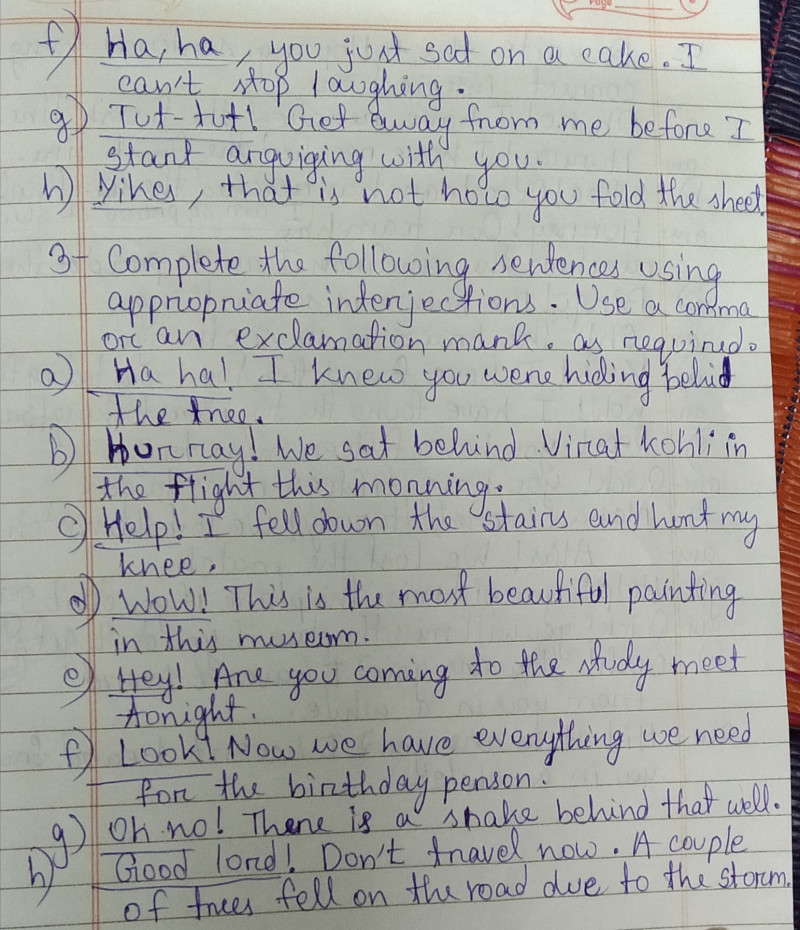 f) Ha, ha, you just sat on a cake. I
can't stop laughing.
g) Tut-tut! Get away from me before I
start arguiging with you.
h) Yikes, that is not how you fold the sheet.
3- Complete the following sentences using
appropriate interjections. Use a comma
or an exclamation mark. as required.
a) Ha ha! I knew you were hiding behid
the tree.
b) Hurray! We sat behind Virat kohli in
the flight this morning.
c) Help! I fell down the stairs and hurt my
knee.
d) WoW! This is the most beautiful painting
in this museum.
e) Hey! Are you coming to the study meet
tonight.
f) Look! Now we have everything we need
for the birthday person.
g) Oh no! There is a snake behind that well.
h) Good lord! Don't travel now. A couple
of trees fell on the road due to the storm.